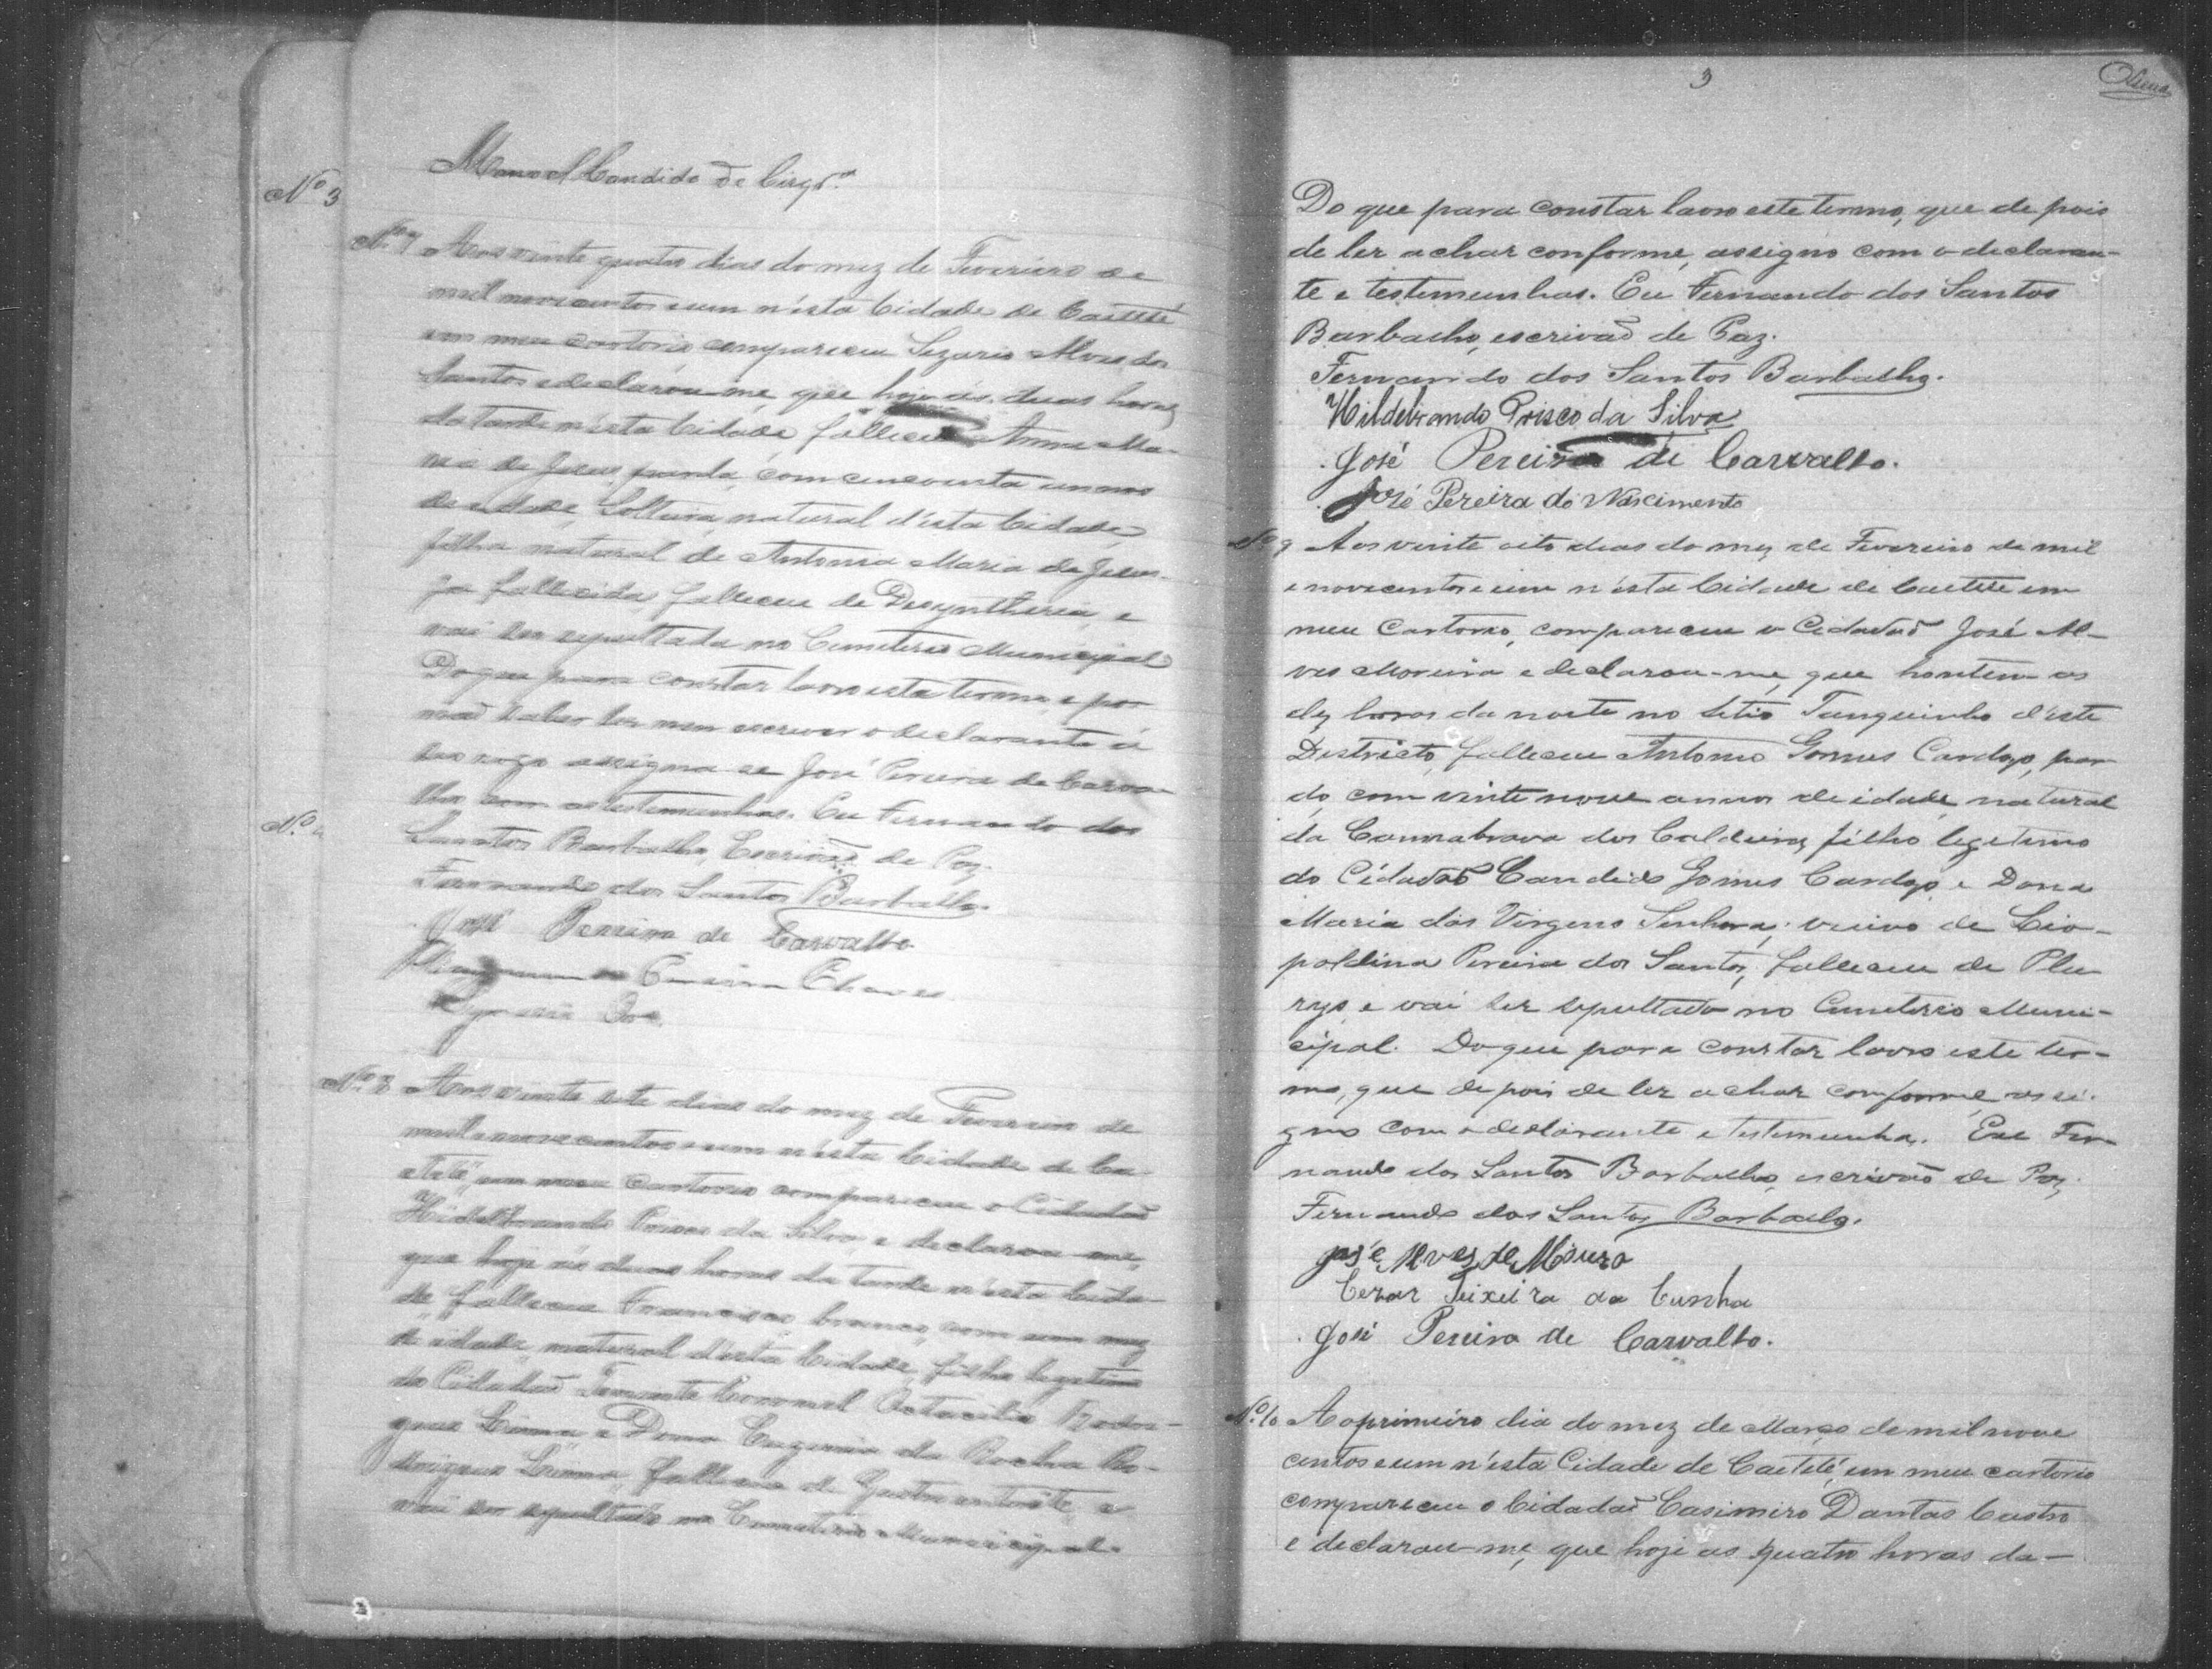 Nº 3
Manoel Candido de Cirqr.ª
Nº 7 Aos vinte quatro dias do mez de Fevereiro de
mil novecentos e um n'esta Cidade de Caetité
em meu cartorio compareceu Lazaro Alves dos
Santos e declarou-me, que hoje ás duas horas
da tarde n'esta Cidade, falleceu Anna Ma-
ria de Jesus, parda, com cincoenta annos
de edade, Solteira, natural d'esta Cidade,
filha natural de Antonia Maria de Jesus
ja fallecida, falleceu de Desyntheria, e
vai ser sepultada no Cemeterio Municipal
Do que para constar lavro este termo, e por
não saber ler nem escrever o declarante á
seu rogo assigna se José Pereira de Carva-
lho com as testemunhas. Eu Fernando dos
Nº 4
Santos Barbalho, Escrivão de Paz.
Fernando dos Santos Barbalho.
José Pereira de Carvalho
Chaves
Nº 8 Aos vinte sete dias do mez de Fevereiro de
mil novecentos e um n'esta Cidade de Ca-
etité, em meu Cartorio compareceu o Cidadão
Hildebrando Prisco da Silva, e declarou-me,
que hoje ás duas horas da tarde n'esta Cida-
de falleceu Francisco, branco, com um mez
de idade, natural d'esta Cidade, filho legitimo
do Cidadão Tenente Coronel Octacilio Rodri-
gues Lima e Dona Eugenia da Rocha Ro-
drigues Lima, falleceu de Gastro enterite, e
vai ser sepultado no Cemeterio Municipal.
3
Do que para constar lavro este termo, que de pois
de ler achar conforme, assigno com o declaran-
te e testemunhas. Eu Fernando dos Santos
Barbalho, escrivão de Paz.
Fernando dos Santos Barbalho.
Hildebrando Prisco da Silva
José Pereira de Carvalho.
José Pereira do Nascimento
Nº 9 Aos vinte oito dias do mez de Fevereiro de mil
e novecentos e um n'esta Cidade de Caetité em
meu Cartorio, compareceu o Cidadão José Al-
ves Moreira e declarou-me, que hontem as
dez horas da noite no Sitio Tanquinho d'este
Districto, falleceu Antonio Gomes Cardozo, par-
do, com vinte nove annos de idade, natural
da Cannabrava dos Caldeiras, filho legitimo
do Cidadão Candido Gomes Cardozo e Dona
Maria das Virgens Senhora; viuvo de Leo-
poldina Pereira dos Santos, falleceu de Pleu-
rys, e vai ser sepultado no Cemeterio Muni-
cipal. Do que para constar lavro este ter-
mo, que depois de ler achar conforme, assi-
gno com o declarante e testemunha. Eu Fer-
nando dos Santos Barbalho, escrivão de Paz,
Fernando dos Santos Barbalho.
José Alves de Moura
Cezar Teixeira da Cunha
José Pereira de Carvalho.
Nº 10 Ao primeiro dia do mez de Março de mil nove
centos e um n'esta Cidade de Caetité, em meu cartorio
compareceu o Cidadão Casimiro Dantas Castro
e declarou-me, que hoje as quatro horas da-